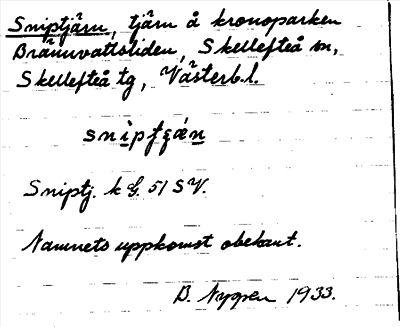 Sniptjärn, tjärn å kronoparken
Brännvattsliden, Skellefteå sn,
Skellefteå tg, Västerb.l.
snipt
Sniptj. k G. 51 SV.
Namnets uppkomst obekant.
B. Nygren 1933.